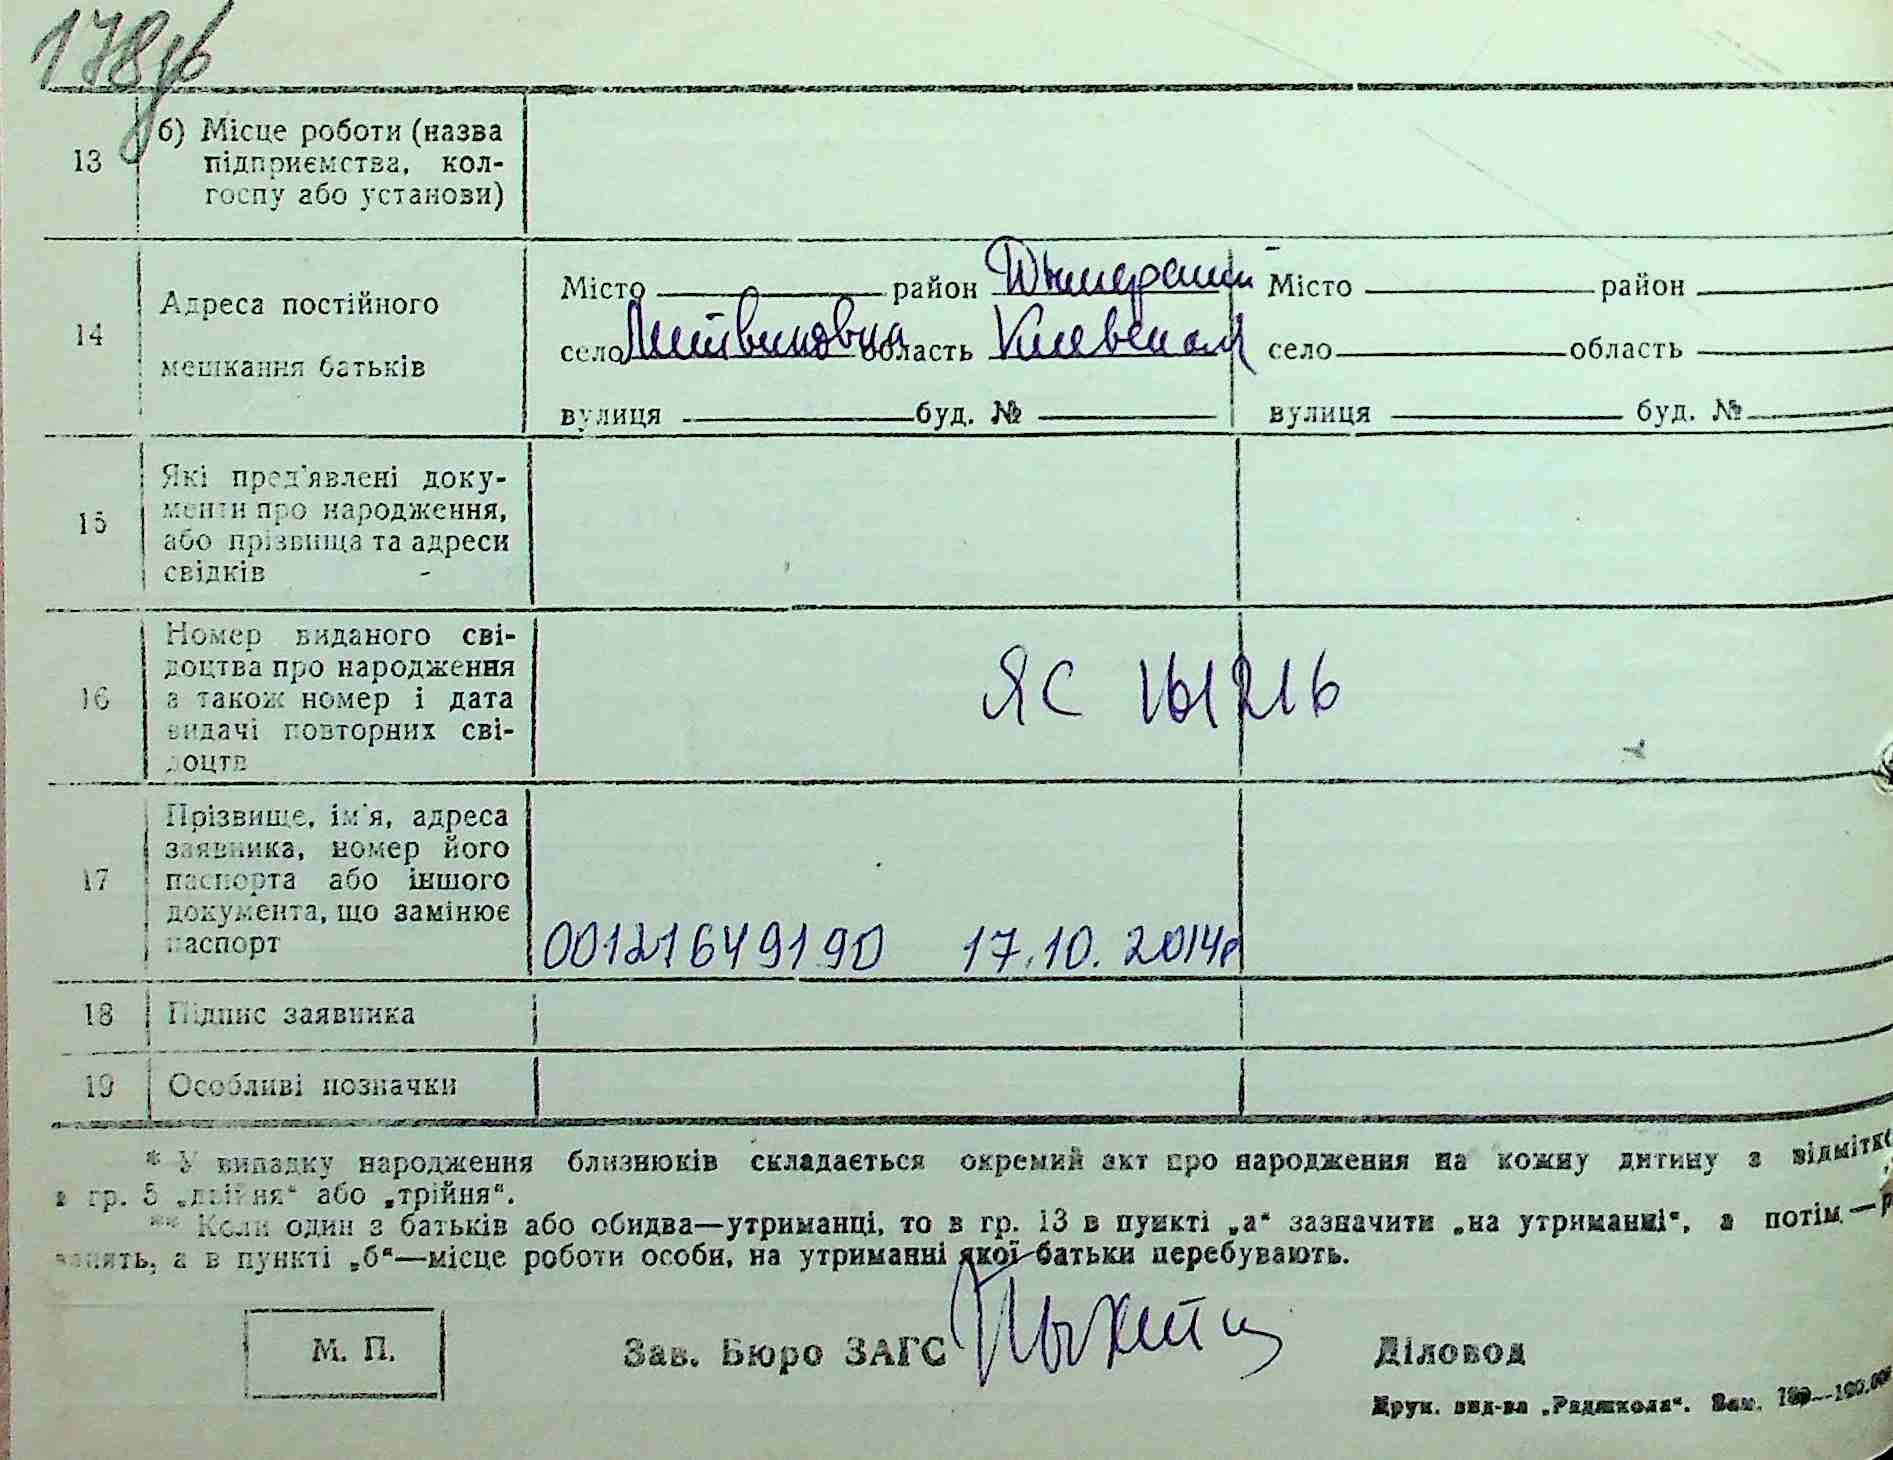 178
13
б) Місце роботи (назва
підприємства, кол-
госпу або установи)
14
Адреса постійного
мешкання батьків
Місто район Дымерский
село Литвиновка область Киевская
вулиця буд. №
Місто район
село область
вулиця буд. №
15
Які пред'явлені доку-
менти про народження,
або прізвища та адреси
свідків
16
Номер виданого сві-
доцтва про народження
а також номер і дата
видачі повторних сві-
доцтв
ЯС 161216
17
Прізвище, ім'я, адреса
заявника, номер його
паспорта або іншого
документа, що замінює
паспорт
00121649190 17.10.2014р
18
Підпис заявника
19
Особливі позначки
* У випадку народження близнюків складається окремий акт про народження на кожну дитину з відмітко
в гр. 5 „двійня“ або „трійня“.
** Коли один з батьків або обидва—утриманці, то в гр. 13 в пункті „а“ зазначити „на утриманні“, а потім —
занять, а в пункті „б“—місце роботи особи, на утриманні якої батьки перебувають.
М. П.
Зав. Бюро ЗАГС
Діловод
Друк. вид-ва „Радшкола“. Зам.